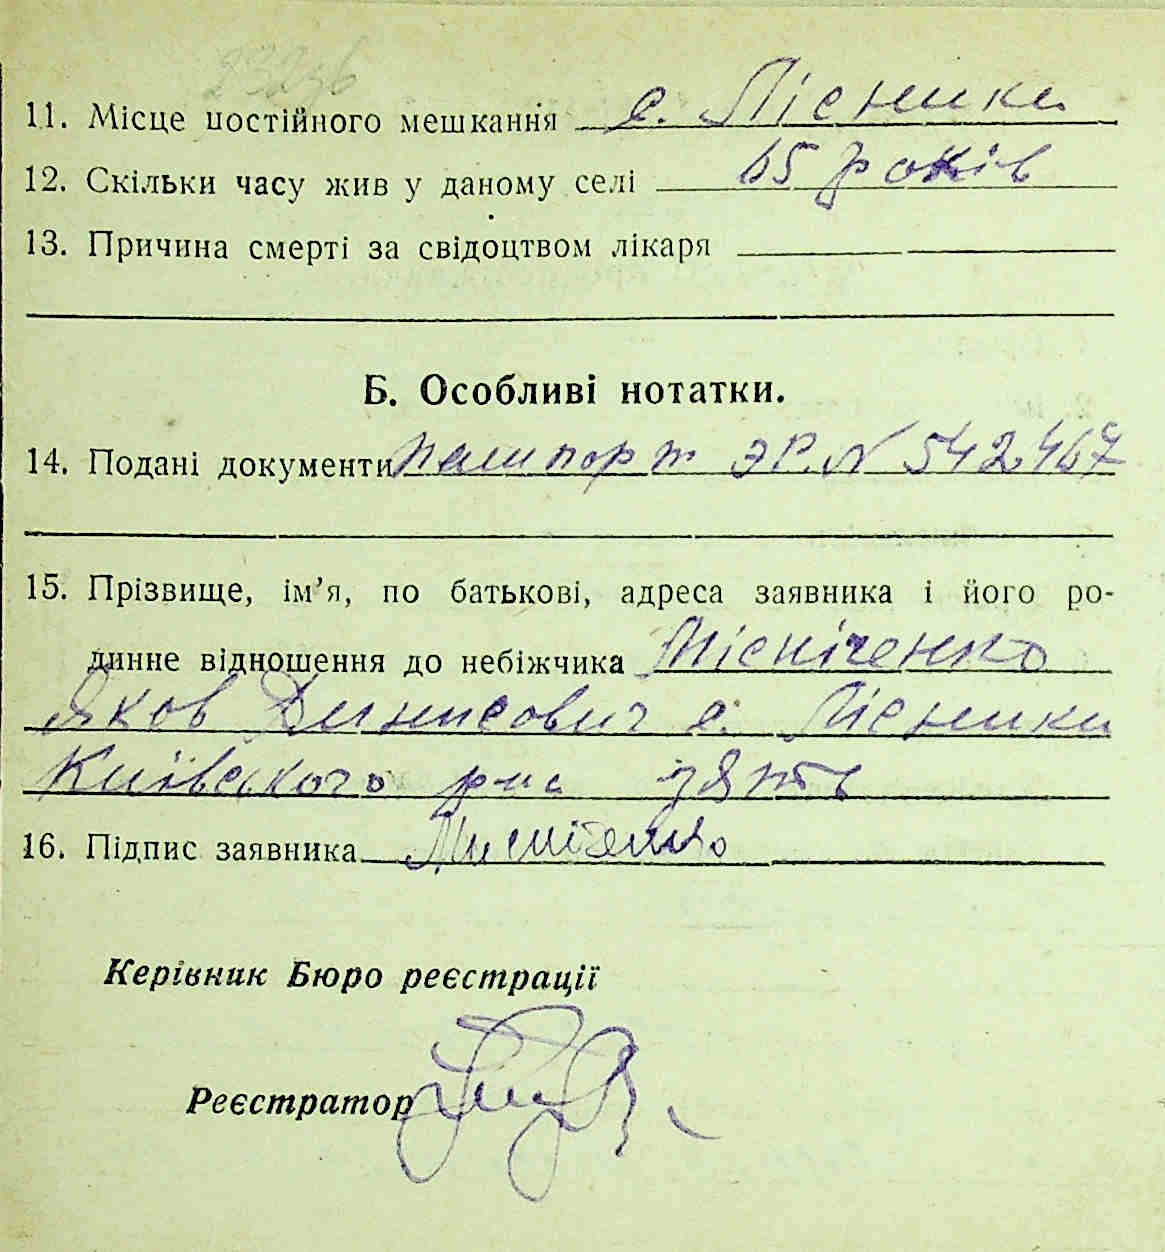 11. Місце постійного мешкання с. Лісники
12. Скільки часу жив у даному селі 65 років
13. Причина смерті за свідоцтвом лікаря
Б. Особливі нотатки.
14. Подані документи пашпорт ЭР. N 542467
15. Прізвище, ім’я, по батькові, адреса заявника і його ро-
динне відношення до небіжчика Місніченко
Яков Динисович с. Лісники
Київського р-на зять
16. Підпис заявника
Керівник Бюро реєстрації
Реєстратор